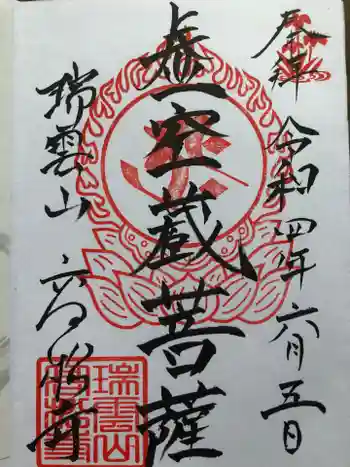 奉拝
令和四年六月五日
虚空蔵菩薩
瑞雲山
高松寺